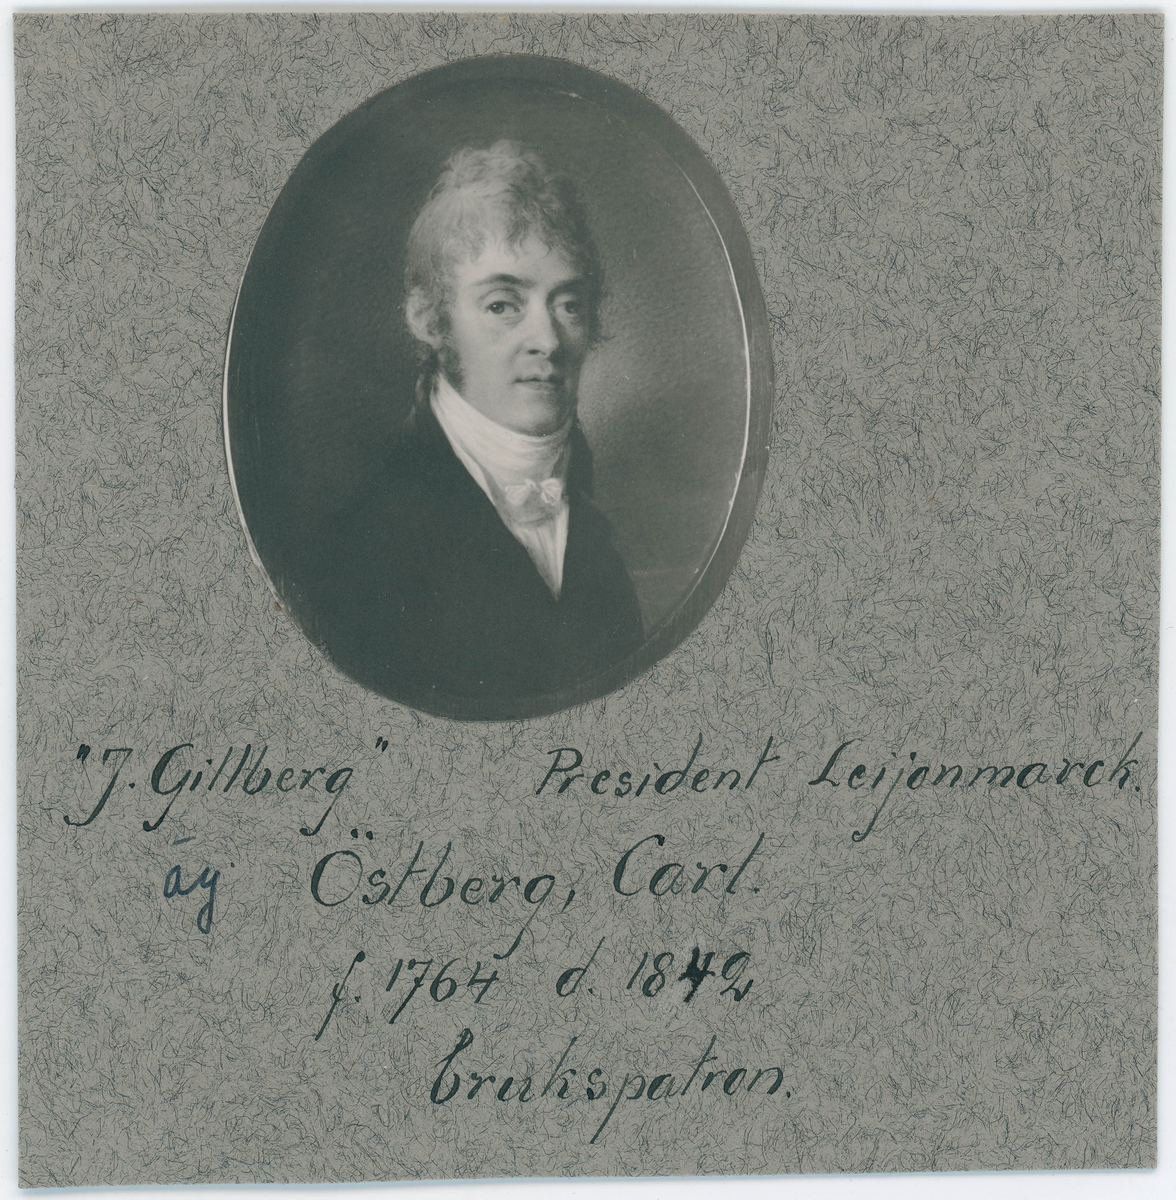 "J. Gillberg" President Leijonmarck.
Östberg, Carl.
f. 1764 d. 1842
brukspatron.